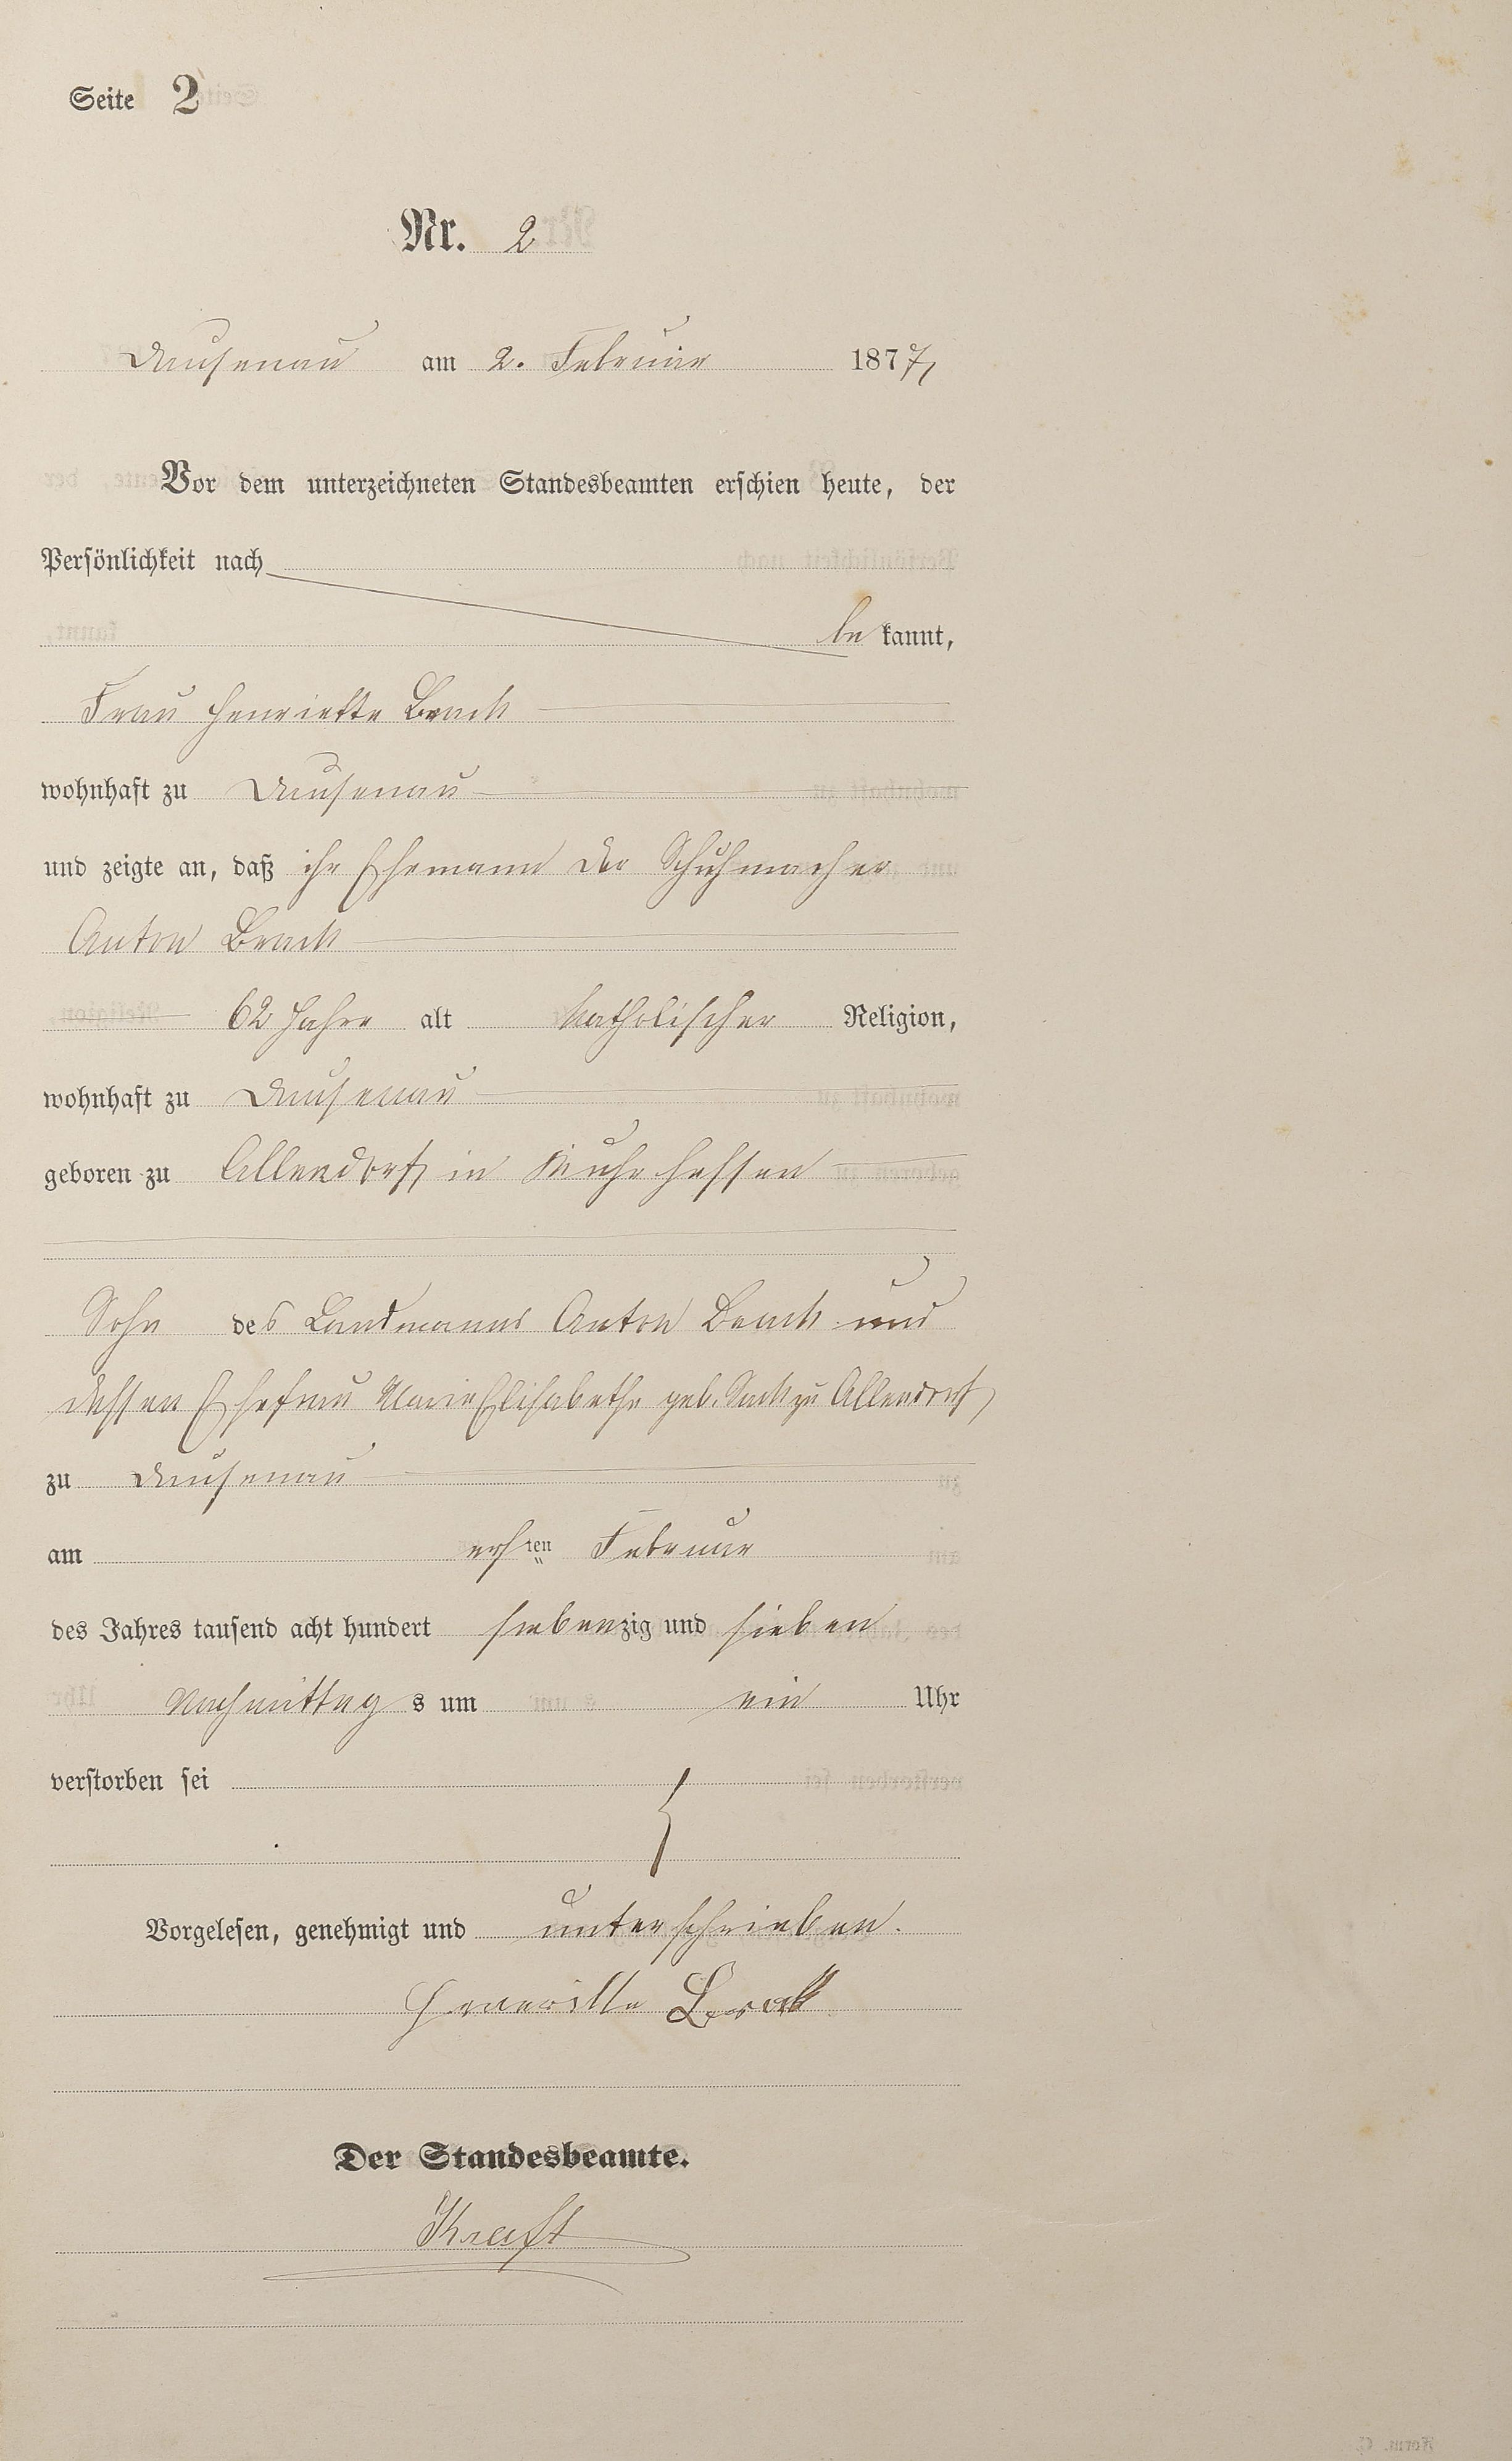 Seite 2
Nr. 2
Dausenau am 2. Februar 1877
Vor dem unterzeichneten Standesbeamten erschien heute, der
Persönlichkeit nach
be kannt,
Frau Henriette Brack
wohnhaft zu Dausenau
und zeigte an, daß ihr Ehemann der Schuhmacher
Anton Brack
62 Jahre alt katholischer Religion,
wohnhaft zu Dausenau
geboren zu Allendorf in Kuhrhessen
Sohn des Landmanns Anton Brack und
dessen Ehefrau Marie Elisabethe geb. zu Allendorf
zu Dausenau
am ersten Februar
des Jahres tausend acht hundert siebenzig und sieben
Nachmittag s um ein Uhr
verstorben sei
Vorgelesen, genehmigt und unterschrieben.
Henriette Brack
Der Standesbeamte.
Kraft